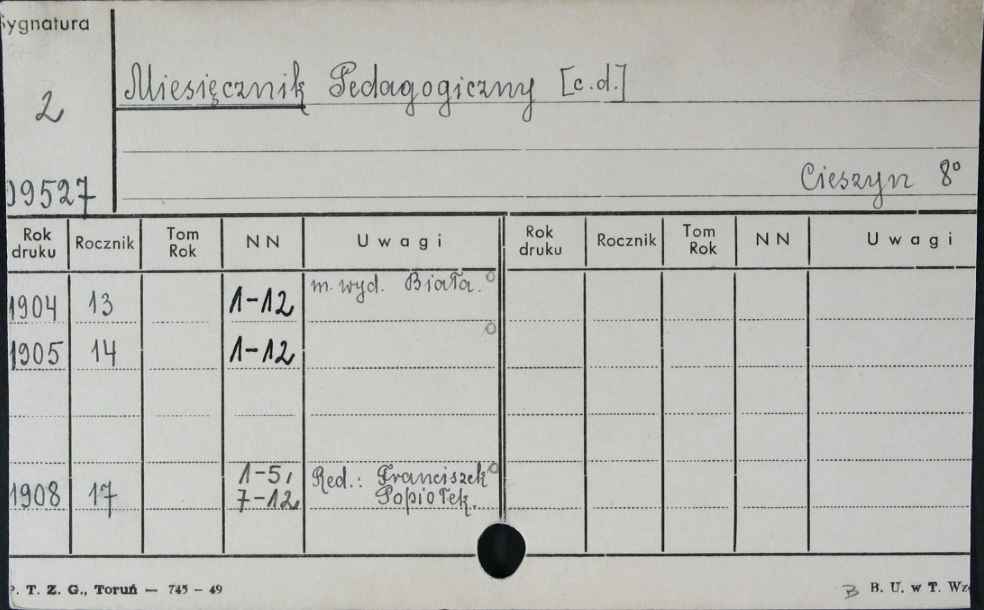 Sygnatura
2
09527
Miesięcznik Pedagogiczny [c.d.]
Cieszyn 8°
Rok druku Rocznik Tom Rok NN Uwagi Rok druku Rocznik Tom Rok NN Uwagi
1904 13 1-12 m. wyd. Biała.
1905 14 1-12
1908 17 1-5, 7-12 Red.: Franciszek Popiołek.
P. T. Z. G., Toruń — 745 - 49
B B. U. w T. Wz